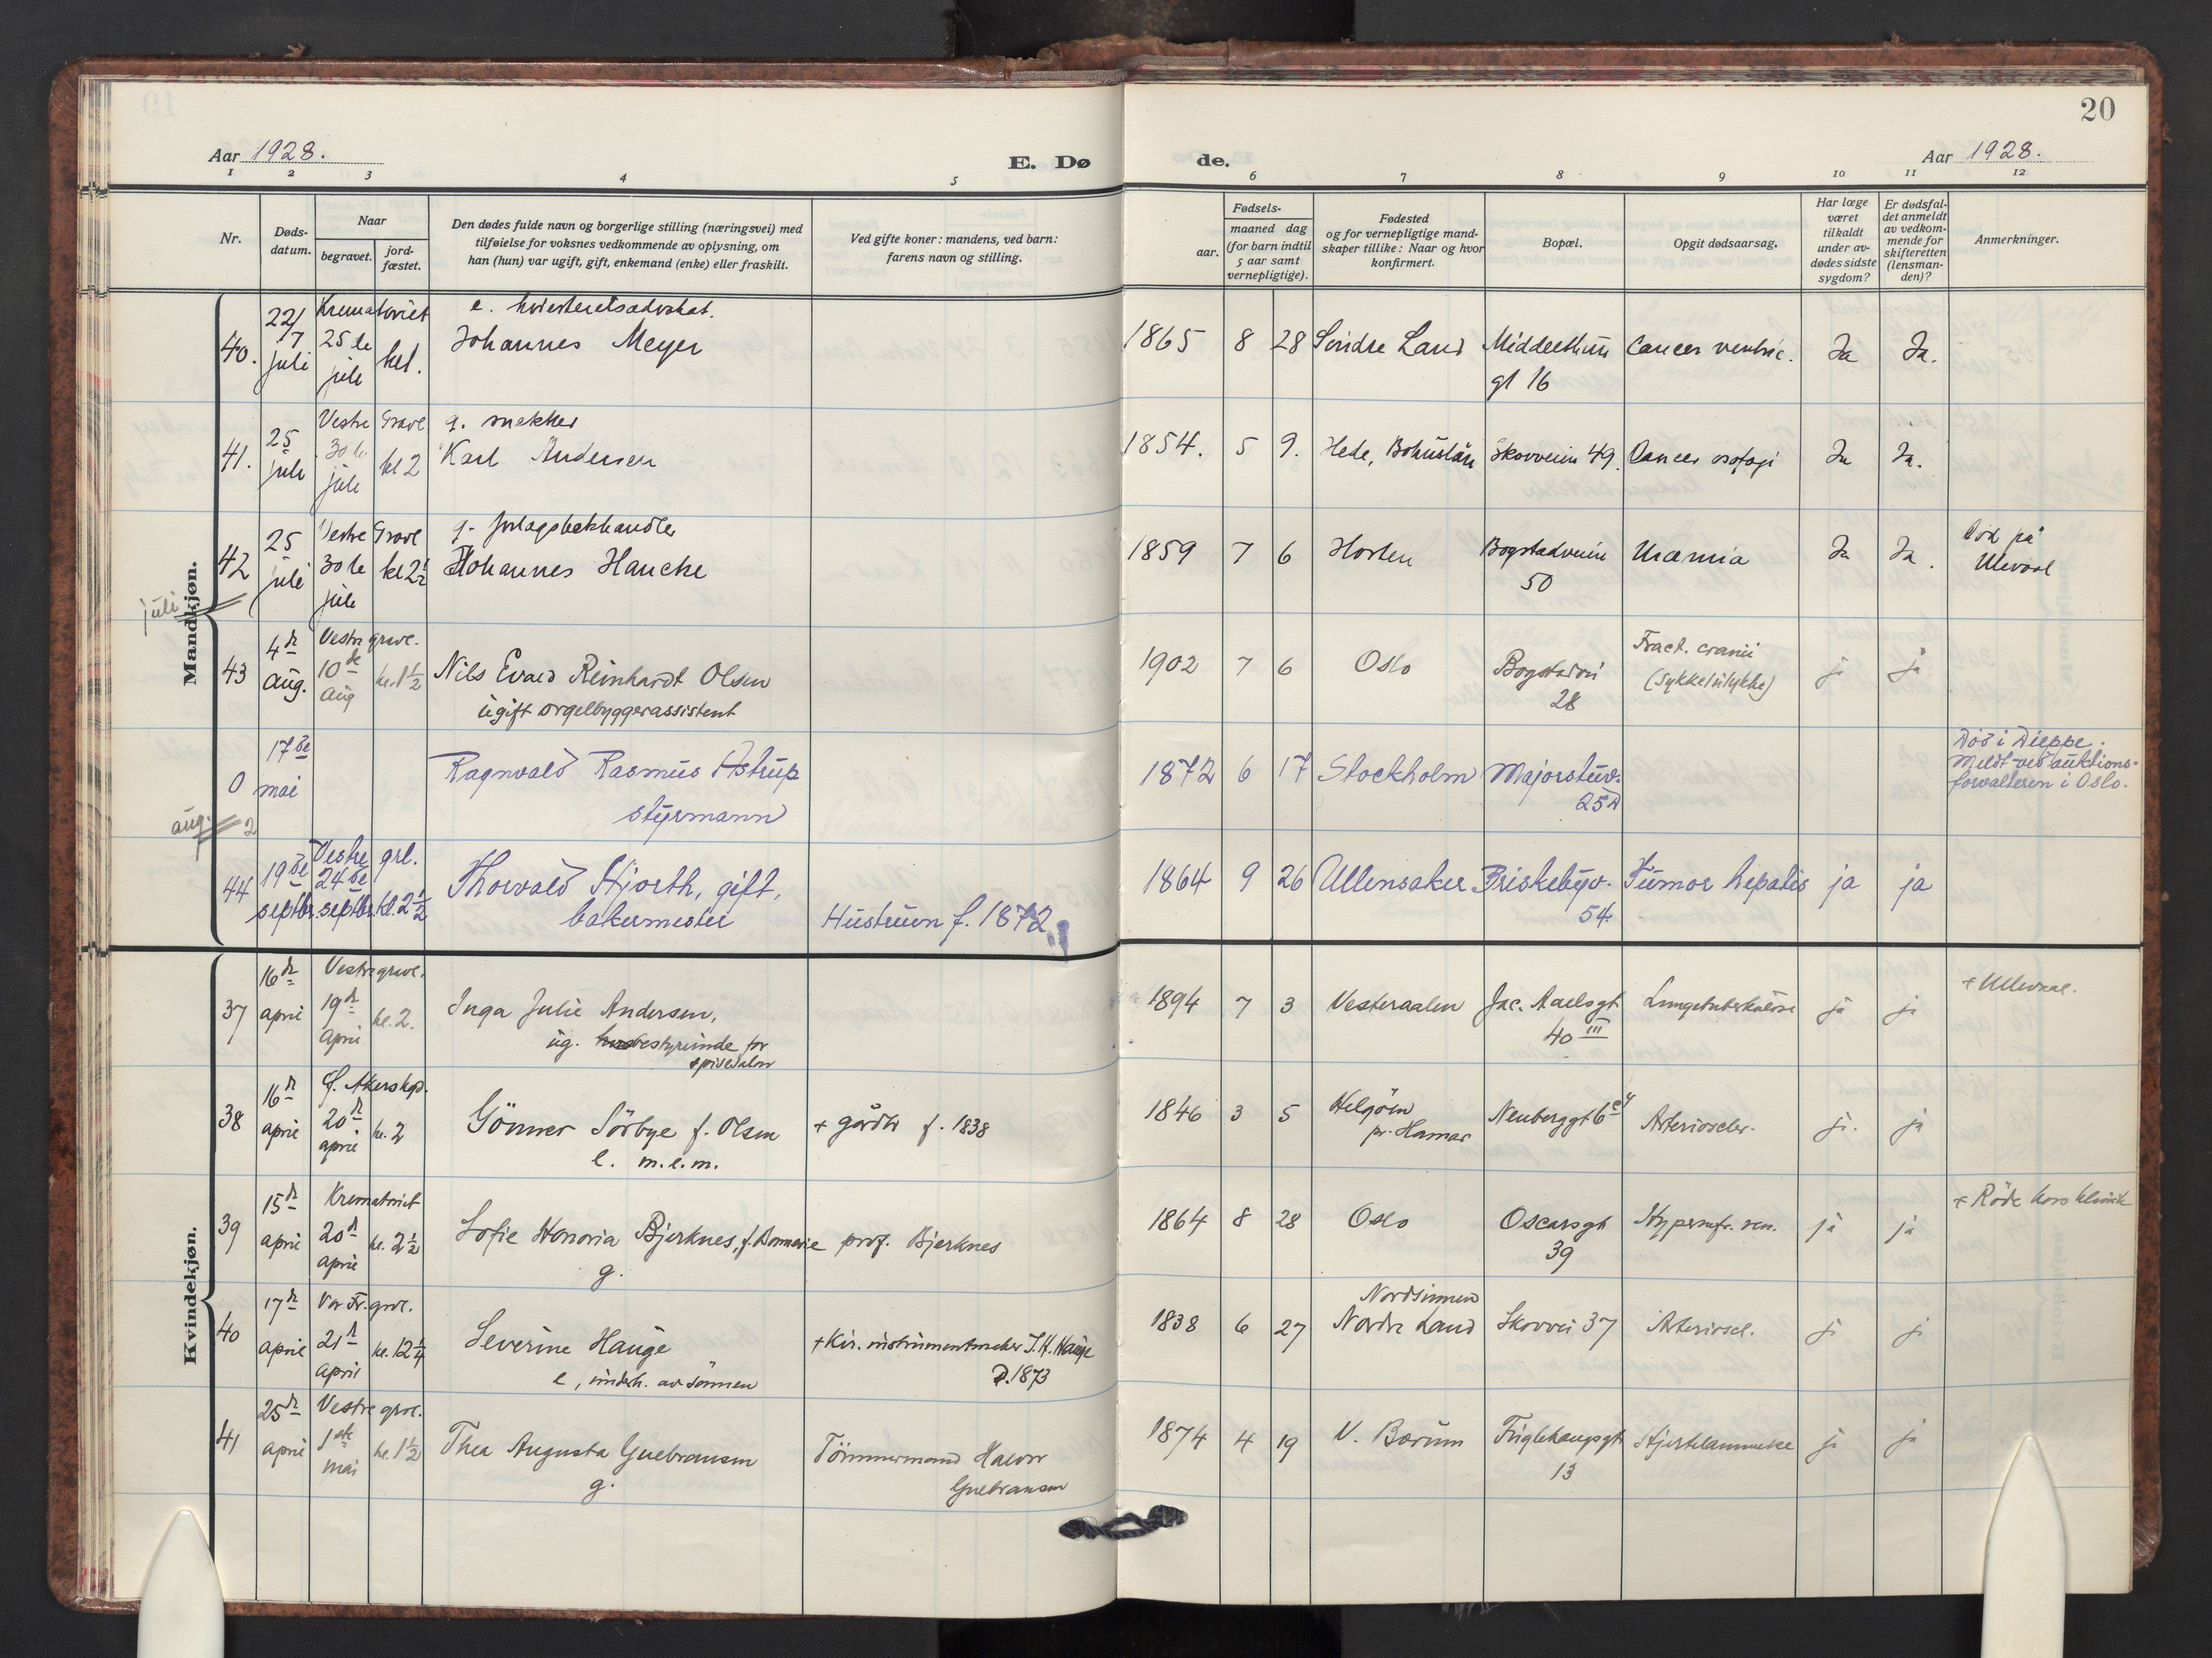 20
Aar 1928.
E. Dø
de.
Aar 1928.
1 2 3 4 5 6 7 8 9 10 11 12
Nr.
Døds-
datum.
Naar
begravet.
jord-
fæstet.
Den dødes fulde navn og borgerlige stilling (næringsvei) med
tilføielse for voksnes vedkommende av oplysning, om
han (hun) var ugift, gift, enkemand (enke) eller fraskilt.
Ved gifte koner: mandens, ved barn:
farens navn og stilling.
Fødsels-
aar.
maaned dag
(for barn indtil
5 aar samt
vernepligtige).
Fødested
og for vernepligtige mand-
skaper tillike: Naar og hvor
konfirmert.
Bopæl.
Opgit dødsaarsag.
Har læge
været
tilkaldt
under av-
dødes sidste
sygdom?
Er dødsfal-
det anmeldt
av vedkom-
mende for
skifteretten
(lensman-
den)?
Anmerkninger.
Mandkjøn.
40.
22/
juli
Krematoriet
25 de
juli
kl 1.
e. høiesteretsadvokat.
Johannes Meyer
1865 8 28 Søndre Land Middelthuns
gt 16
Cancer ventric. Ja Ja.
41.
25
juli
Vestre Gravl
30 te
juli
kl 2
g. snekker
Karl Andersen
1854. 5 9. Hede, Bohuslän Skovveien 49. Cancer osofagi Ja Ja.
42
25
juli
Vestre Gravl
30 te
juli
kl 2½
g. forlagsbokhandler
Johannes Hancke
1859 7 6 Horten Bogstadveien
50
Uræmia Ja Ja.
Död på
Ullevaal
juli
43
4de
aug.
Vestre gravl.
10de
aug
kl. 1½
Nils Evald Reinhardt Olsen
ugift orgelbyggerassistent
1902 7 6 Oslo Bogstadvei
28
Fract. cranii
(Sykkelulykke)
ja ja
0
17de
mai
Ragnvald Rasmus Astrup
styrmann
1872 6 17 Stockholm Majorstuv.
25 D
Död i Dieppe.
Meldt ved auktions-
forvalteren i Oslo.
aug. 2
44
19de
septbr.
Vestre grl.
24de
septbr.
kl. 2½
Thorvald Hjorth, gift,
bakermester
Hustruen f. 1872
1864 9 26 Ullensaker Briskebyv.
54
Tumor hepatis ja ja
Kvindekjøn.
37
16de
april
Vestre gravl.
19de
april
kl. 2.
Inga Julie Andersen,
ug. bestyrerinde for
spisesalon
1894 7 3 Vesteraalen Jac. Aalls gt
40 III
Lungetuberkulose ja ja
+ Ullevaal.
38
16de
april
G. Akers kgd.
20de
april
kl. 2
Gönner Sörbye f. Olsen
e. m.e.m.
+ gårdbr f. 1838
1846 3 5 Helgöen
pr. Hamar
Neuberggt 6
Arterioscler. ja. ja
39
15de
april
Krematoriet
20de
april
kl. 2½
Sofie Honoria Bjerknes, f. Bonnevie
g.
prof. Bjerknes
1864 8 28 Oslo Oscarsgt
39
Hypernefr. ren. ja ja
+ Röde kors klinik
40
17de
april
Vor Fr. gravl.
21de
april
kl. 12¼
Severine Hauge
e, underh. av sönnen
+ Kir. instrumentmaker J. H. Hauge
D. 1873
1838 6 27
Nordsinnen
Nordre Land
Skovvei 37 Arterioscl. ja ja
41
25de
april
Vestre gravl.
1ste
mai
kl. 1½
Thea Augusta Gulbransen
g.
Tömmermand Halvor
Gulbransen
1874 4 19 V. Bærum Fuglehaugsgt
13
Hjertelammelse ja ja